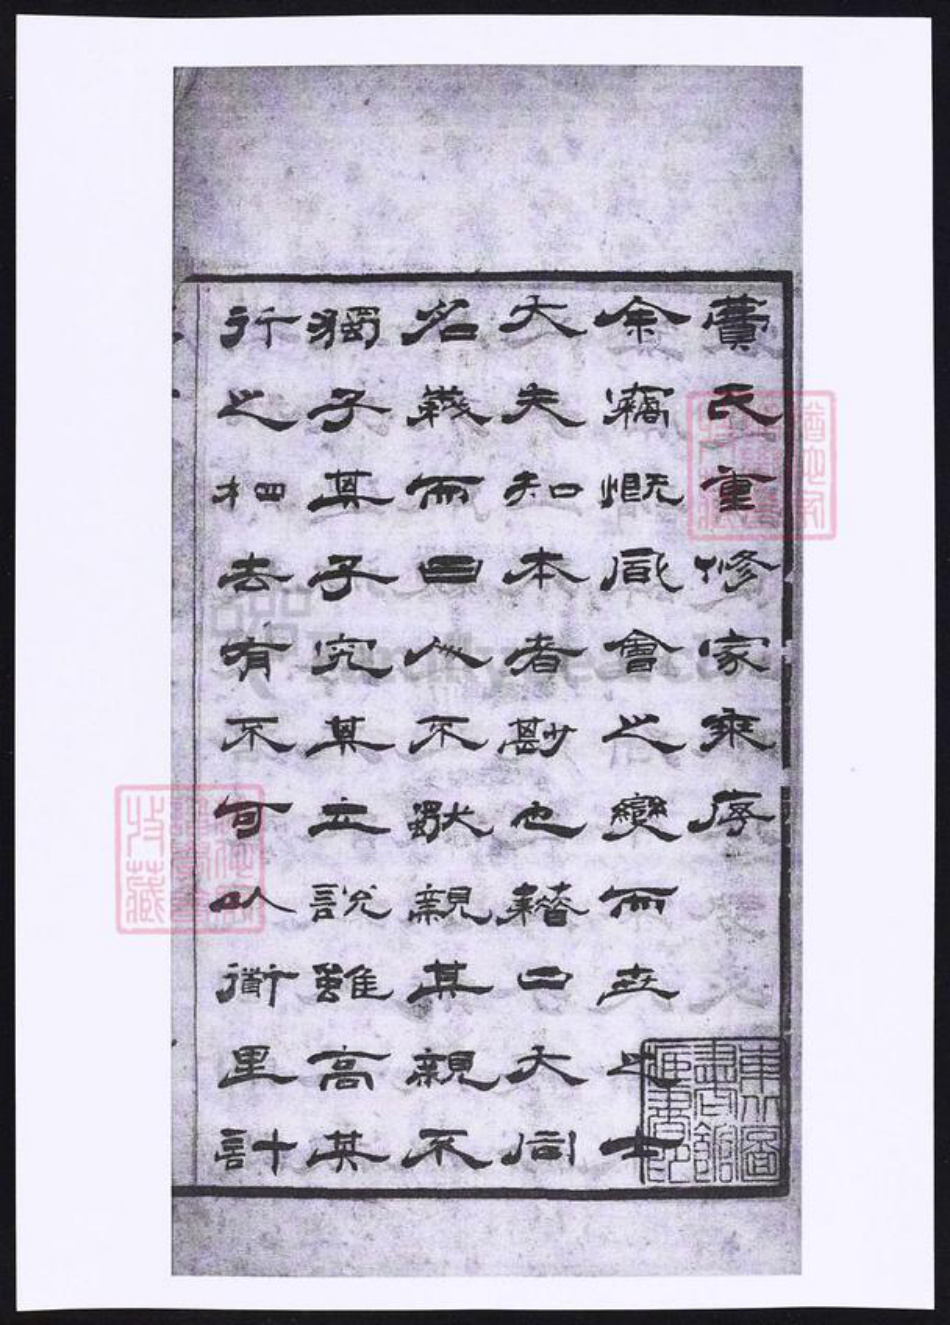 費氏重修家乘序
余竊慨風會之變而世之士
大夫知本者尠也藉口大同
名義而曰人不獨親其親不
獨子其子究其立說雖高其
行之相去有不可以衟里計